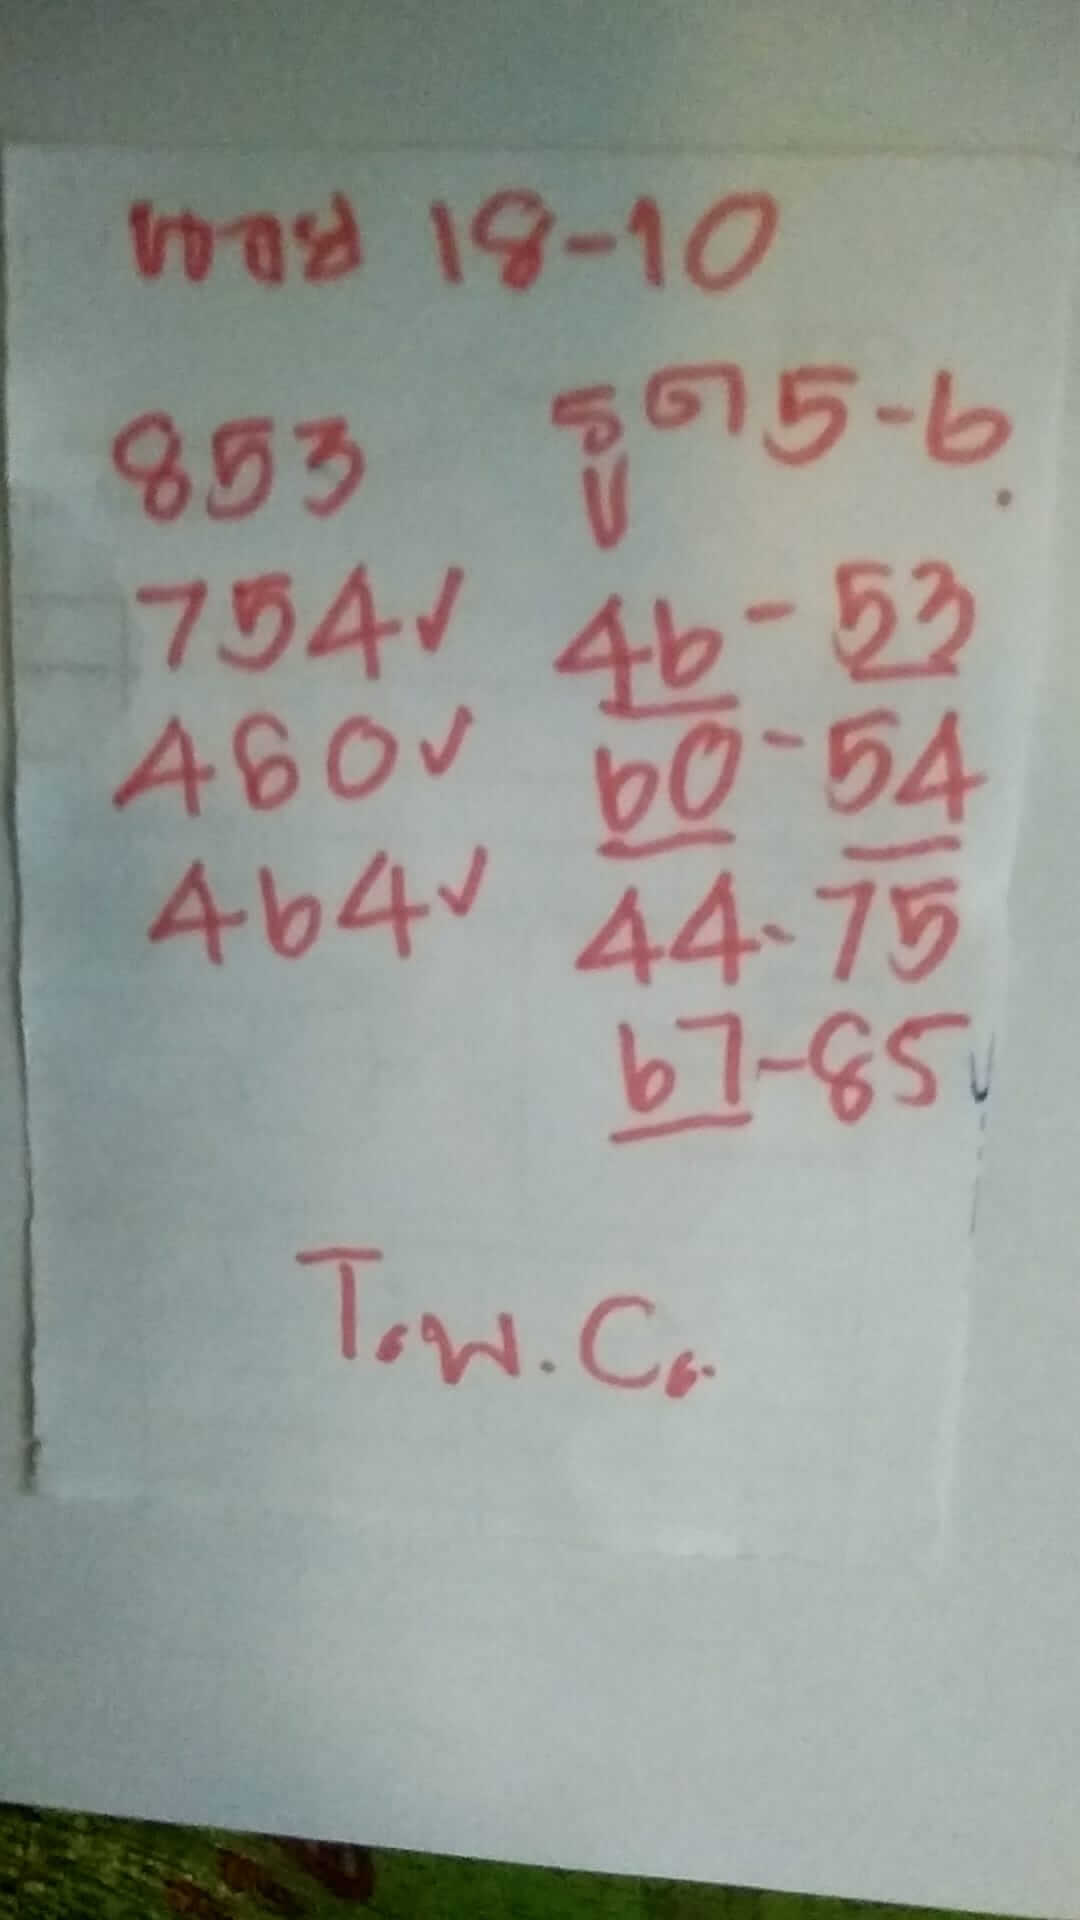 หวย 18-10
853
754✓
460✓
464✓
รูด 5-6
46-53
60-54
44-75
67-85
T.W.C.